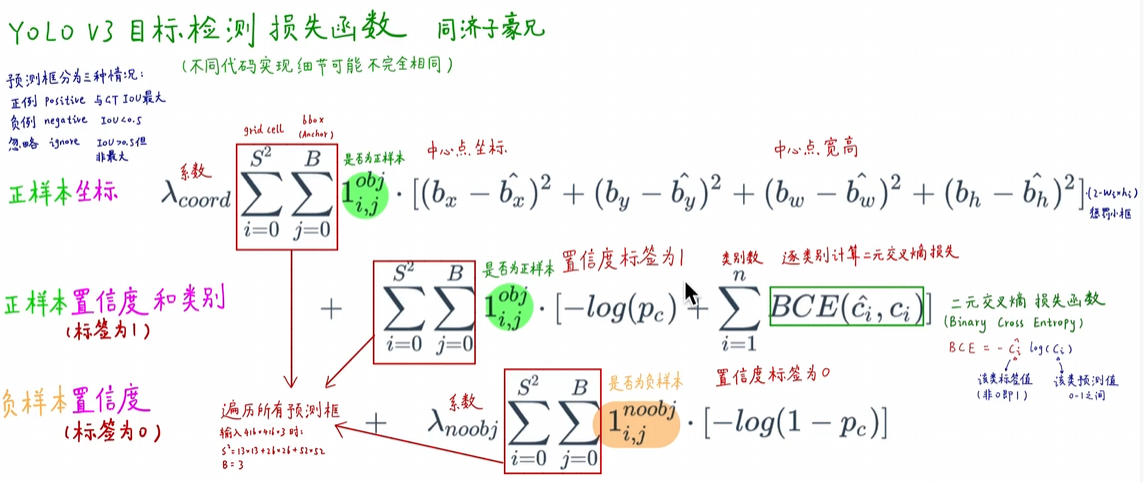 YOLO V3 目标检测 损失函数 同济子豪兄
(不同代码实现细节可能不完全相同)
预测框分为三种情况:
正例 Positive 与GT IOU最大
负例 negative IOU<0.5
忽略 ignore IOU>0.5但
非最大
grid cell
bbox
(Anchor)
系数
是否为正样本
中心点坐标
中心点宽高
正样本坐标
λ_{coord} \sum_{i=0}^{S^2} \sum_{j=0}^{B} 1_{i,j}^{obj} · [(b_x − \hat{b_x})^2 + (b_y − \hat{b_y})^2 + (b_w − \hat{b_w})^2 + (b_h − \hat{b_h})^2] ·(2-w_i×h_i)
惩罚小框
是否为正样本
置信度标签为1
类别数
逐类别计算二元交叉熵损失
正样本置信度 和类别
(标签为1)
+ \sum_{i=0}^{S^2} \sum_{j=0}^{B} 1_{i,j}^{obj} · [−log(p_c) + \sum_{i=1}^{n} BCE(\hat{c_i}, c_i)]
二元交叉熵 损失函数
(Binary Cross Entropy)
BCE = - \hat{c_i} log(c_i)
该类标签值
(非0即1)
该类预测值
0-1之间
负样本置信度
(标签为0)
系数
是否为负样本
置信度标签为0
+ λ_{noobj} \sum_{i=0}^{S^2} \sum_{j=0}^{B} 1_{i,j}^{noobj} · [−log(1 − p_c)]
遍历所有预测框
输入416×416×3时:
S²=13×13+26×26+52×52
B=3